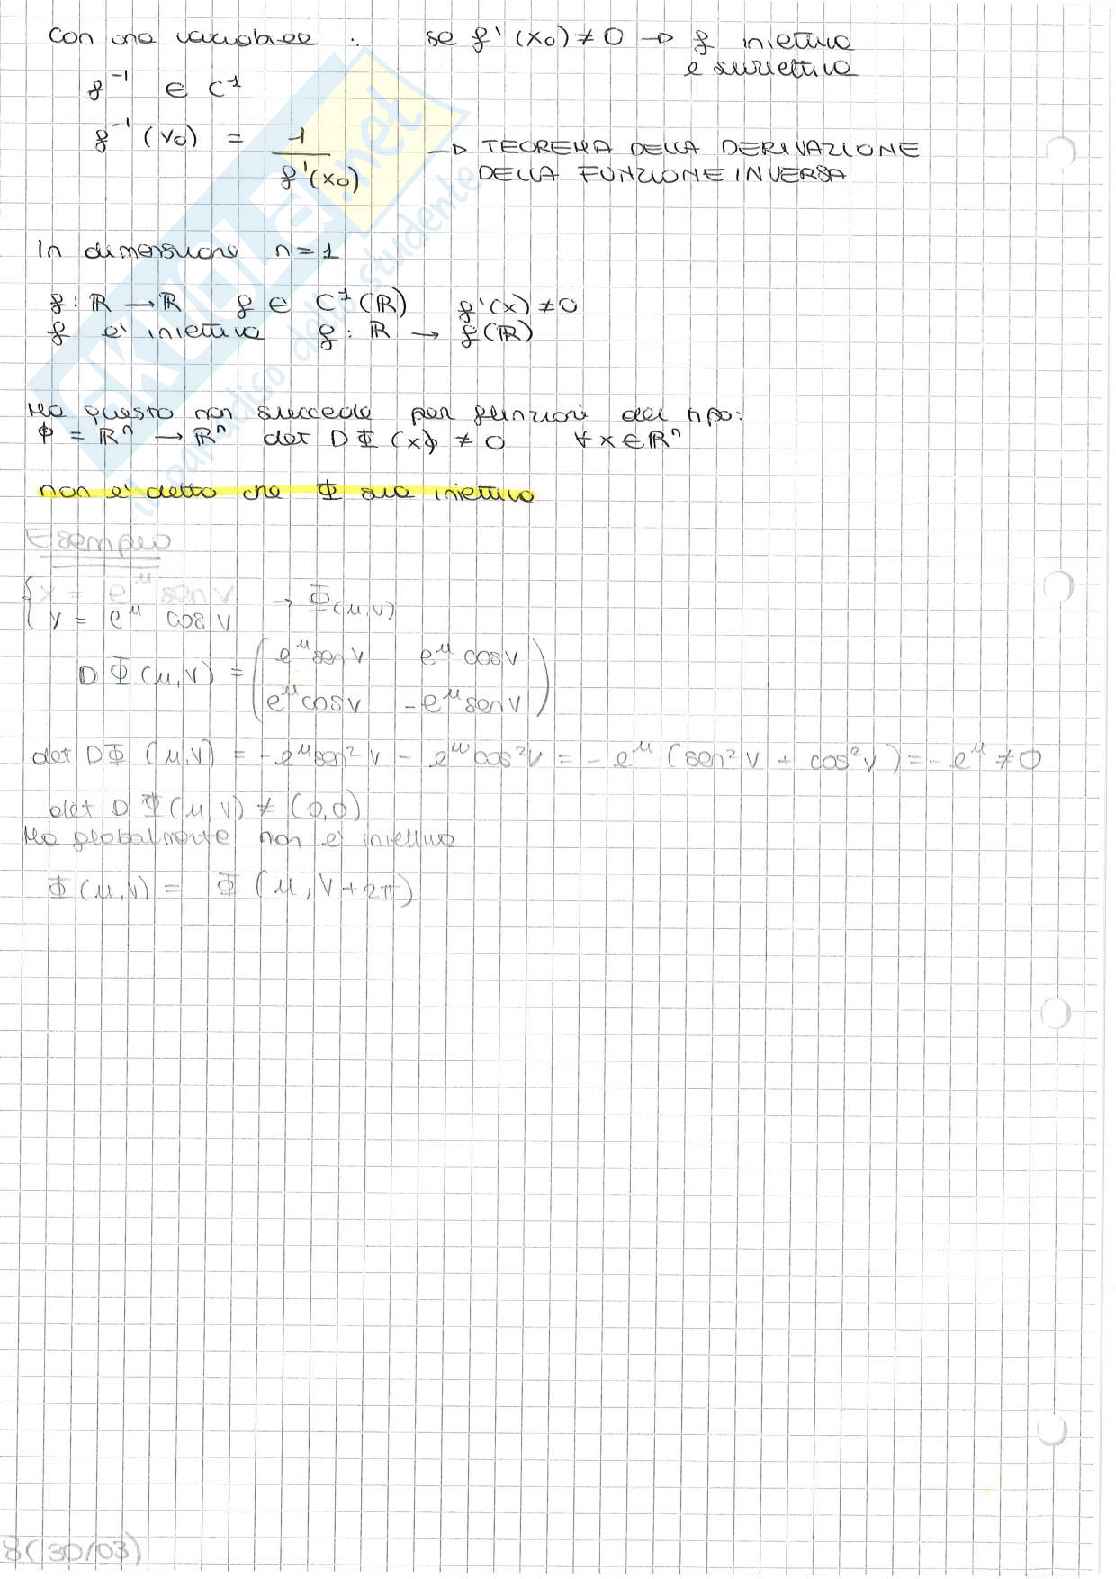 Con una variabile : se f'(x₀) ≠ 0 → f iniettiva
e suriettiva
f⁻¹ ∈ C¹
f⁻¹(y₀) = 1 / f'(x₀) → TEOREMA DELLA DERIVAZIONE
DELLA FUNZIONE INVERSA
In dimensione n = 1
f : ℝ → ℝ f ∈ C¹(ℝ) f'(x) ≠ 0
f è iniettiva f : ℝ → f(ℝ)
Ma questo non succede per funzioni del tipo:
Φ = ℝⁿ → ℝⁿ det DΦ(x) ≠ 0 ∀ x ∈ ℝⁿ
non è detto che Φ sia iniettiva
Esempio
{ x = e^μ sen v
y = e^μ cos v → Φ(μ,v)
DΦ(μ,v) = ( e^μ sen v e^μ cos v
e^μ cos v - e^μ sen v )
det DΦ (μ,v) = - e^μ sen² v - e^μ cos² v = - e^μ (sen² v + cos² v) = - e^μ ≠ 0
det DΦ(μ,v) ≠ (0,0)
Ma globalmente non è iniettiva
Φ(μ,v) = Φ(μ, v+2π)
8(30/03)
SKUOLA.net
il paradiso dello studente